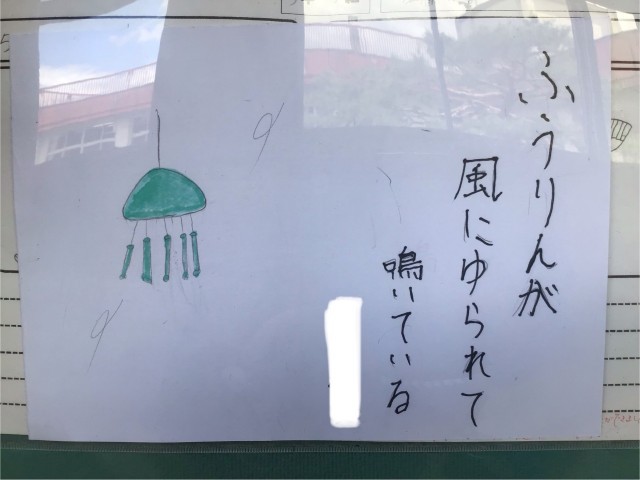 ふうりんが
風にゆられて
鳴いている